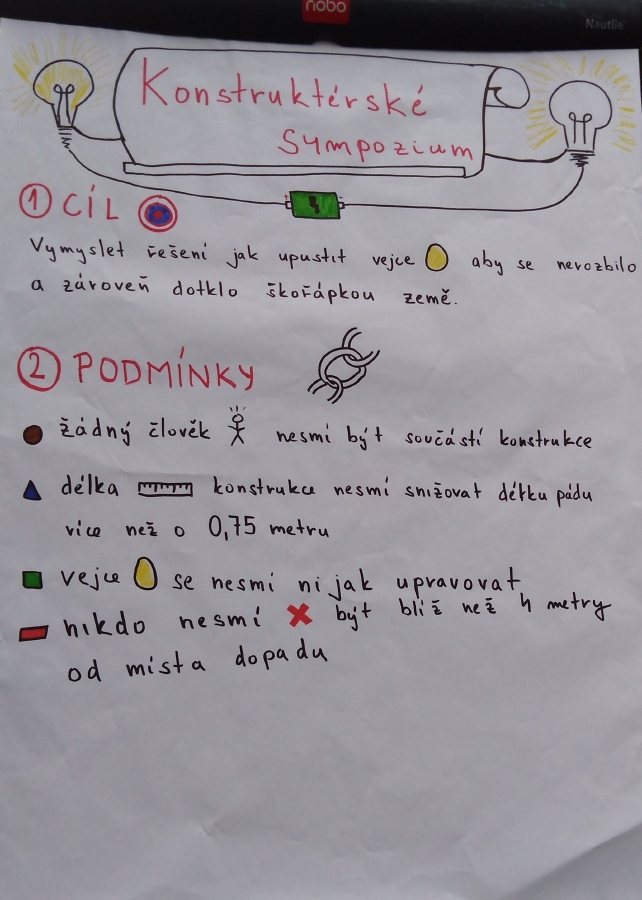 nobo
Nautile
Konstruktérské
Sympozium
1 CÍL
Vymyslet řešení jak upustit vejce aby se nerozbilo
a zároveň dotklo škořápkou země.
2 PODMÍNKY
žádný člověk nesmí být součástí konstrukce
délka konstrukce nesmí snižovat délku pádu
více než o 0,75 metru
vejce se nesmí nijak upravovat
nikdo nesmí být blíž než 4 metry
od místa dopadu